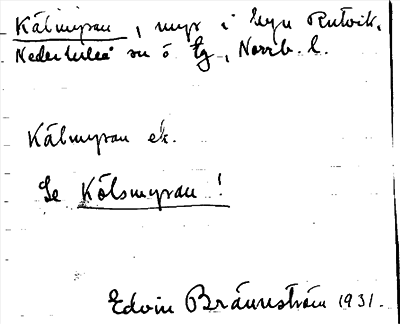 Kälmyran, myr i byn Rutvik,
Nederluleå sn ö tg, Norrb. l.
Kälmyran ek.
Se Kölsmyran!
Edvin Brännström 1931.